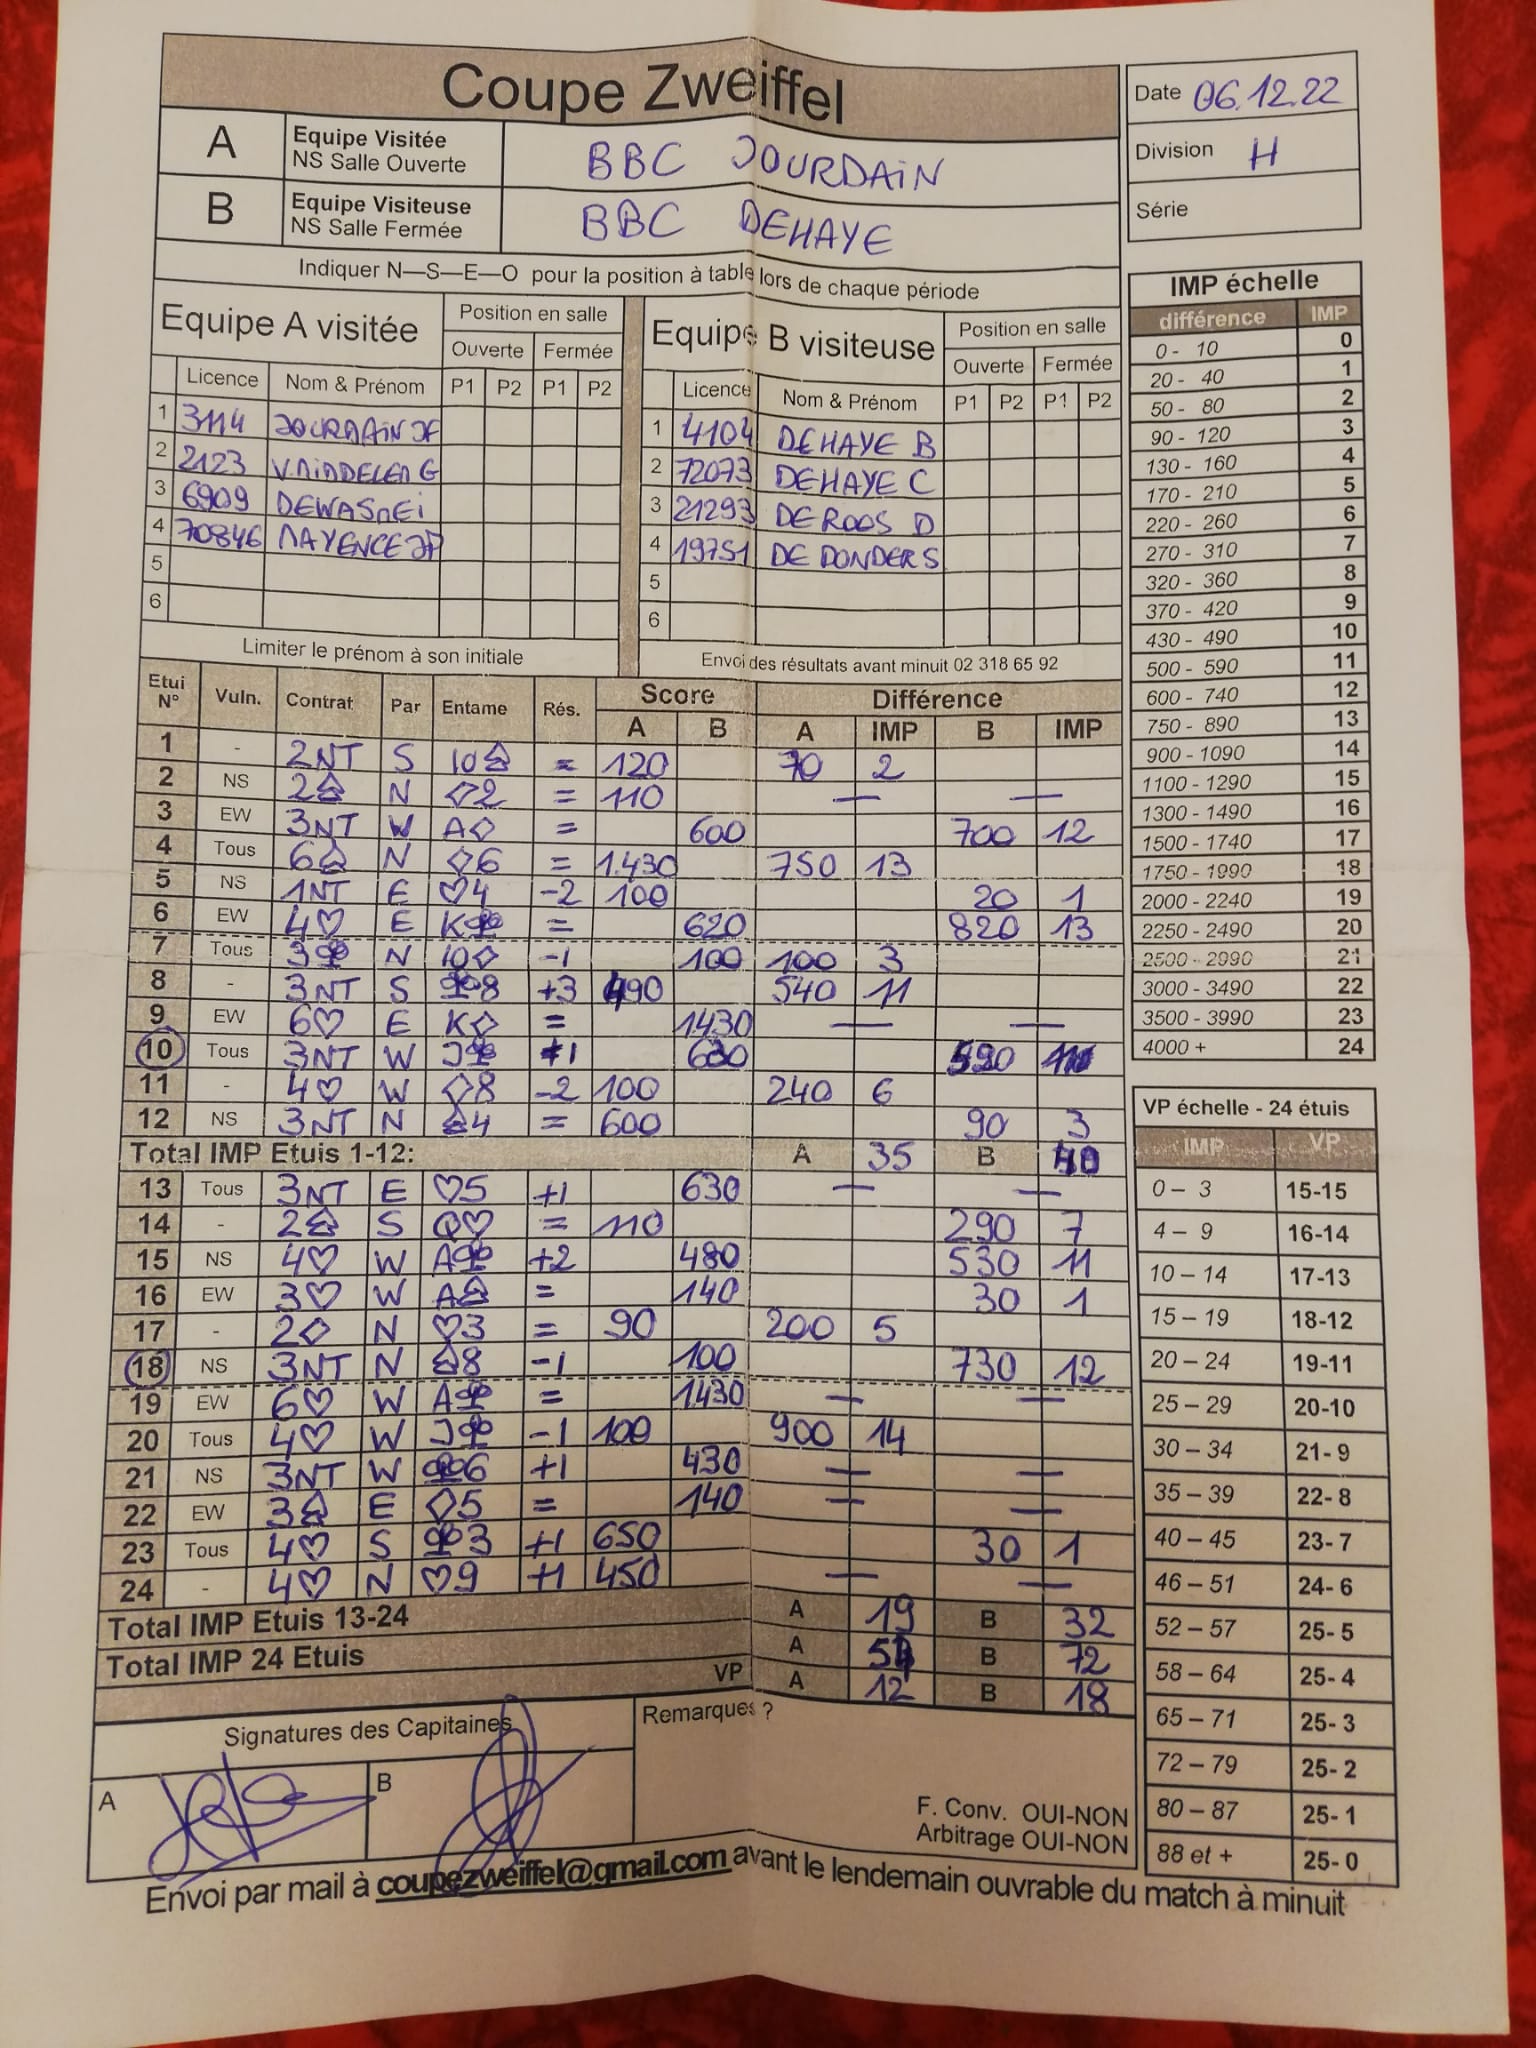 Coupe Zweiffel
Date 06.12.22
A Equipe Visitée NS Salle Ouverte BBC JOURDAIN
Division H
B Equipe Visiteuse NS Salle Fermée BBC DEHAYE
Série
Indiquer N—S—E—O pour la position à table lors de chaque période
Equipe A visitée Position en salle
Ouverte Fermée
Licence Nom & Prénom P1 P2 P1 P2
1 3114 JOURDAIN JF
2 2123
3 6909
4 70846 MAYENCE JP
5
6
Limiter le prénom à son initiale
Equipe B visiteuse Position en salle
Ouverte Fermée
Licence Nom & Prénom P1 P2 P1 P2
1 4104 DEHAYE B
2 72073 DEHAYE C
3 21293 DE ROOS D
4 19751 DE DONDER S
5
6
Envoi des résultats avant minuit 02 318 65 92
IMP échelle
différence IMP
0 - 10 0
20 - 40 1
50 - 80 2
90 - 120 3
130 - 160 4
170 - 210 5
220 - 260 6
270 - 310 7
320 - 360 8
370 - 420 9
430 - 490 10
500 - 590 11
600 - 740 12
750 - 890 13
900 - 1090 14
1100 - 1290 15
1300 - 1490 16
1500 - 1740 17
1750 - 1990 18
2000 - 2240 19
2250 - 2490 20
2500 - 2990 21
3000 - 3490 22
3500 - 3990 23
4000 + 24
Etui N° Vuln. Contrat Par Entame Rés. Score Différence
A B A IMP B IMP
1 - 2NT S 10♤ = 120 70 2
2 NS 2♤ N ♢2 = 110 — —
3 EW 3NT W A♢ = 600 700 12
4 Tous 6♤ N ♢6 = 1.430 750 13
5 NS 1NT E ♡4 -2 100 20 1
6 EW 4♡ E K♧ = 620 820 13
7 Tous 3♧ N 10♢ -1 100 100 3
8 - 3NT S ♧8 +3 490 540 11
9 EW 6♡ E K♢ = 1430 — —
10 Tous 3NT W J♧ +1 630
11 - 4♡ W ♢8 -2 100 240 6
12 NS 3NT N ♤4 = 600 90 3
Total IMP Etuis 1-12: A 35 B 40
13 Tous 3NT E ♡5 +1 630 — —
14 - 2♤ S Q♡ = 110 290 7
15 NS 4♡ W A♧ +2 480 530 11
16 EW 3♡ W A♤ = 140 30 1
17 - 2♢ N ♡3 = 90 200 5
18 NS 3NT N ♤8 -1 100 730 12
19 EW 6♡ W A♧ = 1430 — —
20 Tous 4♡ W J♧ -1 100 900 14
21 NS 3NT W ♧6 +1 430 — —
22 EW 3♤ E ♢5 = 140 — —
23 Tous 4♡ S ♧3 +1 650 30 1
24 - 4♡ N ♡9 +1 450 — —
Total IMP Etuis 13-24 A 19 B 32
Total IMP 24 Etuis A 54 B 72
VP A 12 B 18
VP échelle - 24 étuis
IMP VP
0 – 3 15-15
4 – 9 16-14
10 – 14 17-13
15 – 19 18-12
20 – 24 19-11
25 – 29 20-10
30 – 34 21- 9
35 – 39 22- 8
40 – 45 23- 7
46 – 51 24- 6
52 – 57 25- 5
58 – 64 25- 4
65 – 71 25- 3
72 – 79 25- 2
80 – 87 25- 1
88 et + 25- 0
Signatures des Capitaines
A B
Remarques ?
F. Conv. OUI-NON
Arbitrage OUI-NON
Envoi par mail à coupezweiffel@gmail.com avant le lendemain ouvrable du match à minuit